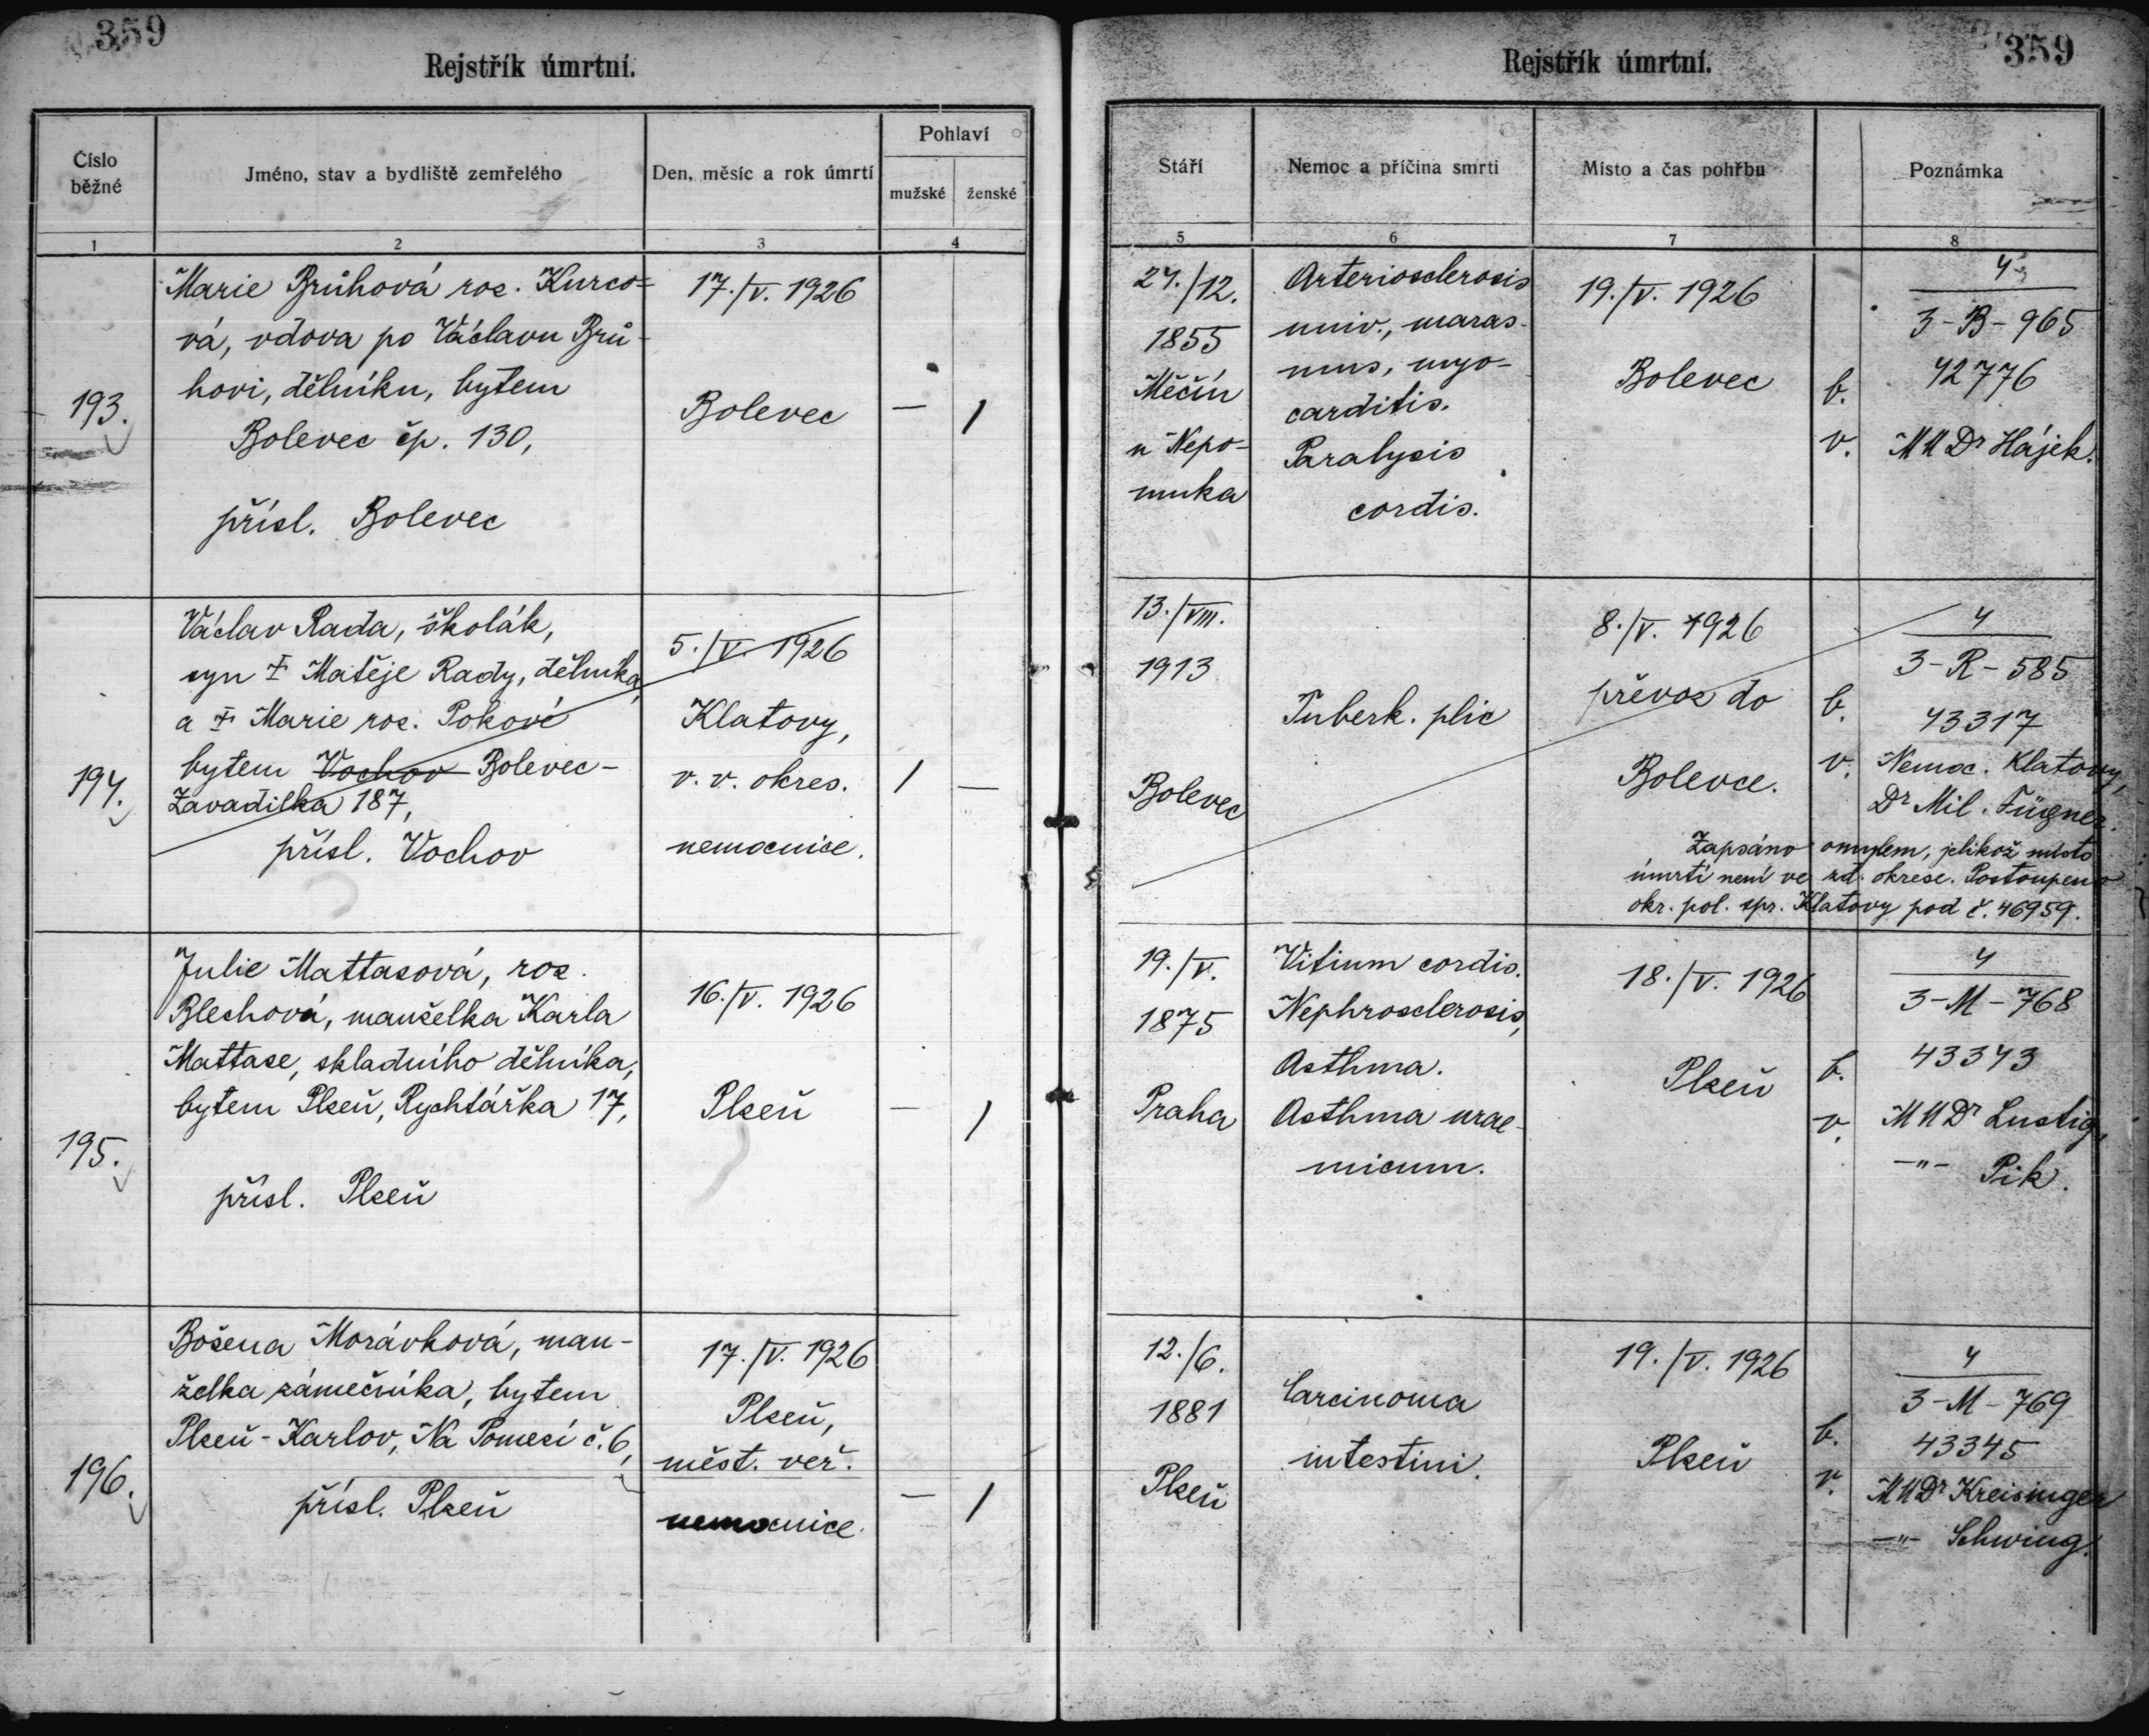 359
Rejstřík úmrtní.
Číslo běžné
Jméno, stav a bydliště zemřelého
Den, měsíc a rok úmrtí
Pohlaví
mužské
ženské
1
2
3
4
Marie Brůhová roz. Kurco=
vá, vdova po Václavu Brů-
hovi, dělníku, bytem
Bolevec čp. 130,
přísl. Bolevec
193.
17./V. 1926
Bolevec
—
1
Václav Rada, školák,
syn ☩ Matěje Rady, dělníka,
a ☩ Marie roz. Pokové
bytem Vochov Bolevec-
Zavadilka 187,
přísl. Vochov
194.
5./V. 1926
Klatovy,
v. v. okres.
nemocnice.
1
—
Julie Mattasová, roz.
Blechová, manželka Karla
Mattase, skladního dělníka,
bytem Plzeň, Rychtářka 17,
přísl. Plzeň
195.
16./V. 1926
Plzeň
—
1
Božena Morávková, man-
želka zámečníka, bytem
Plzeň-Karlov, Na Pomezí č. 6,
přísl. Plzeň
196.
17./V. 1926
Plzeň,
měst. veř.
nemocnice.
—
1
359
Rejstřík úmrtní.
Stáří
Nemoc a příčina smrti
Místo a čas pohřbu
Poznámka
5
6
7
8
27./12.
1855
Měčín
u Nepo-
muka
Arteriosclerosis
univ., maras-
mus, myo-
carditis.
Paralysis
cordis.
19./V. 1926
Bolevec
b.
v.
4
3-B-965
42776
MUDr Hájek.
13./VIII.
1913
Bolevec
Tuberk. plic
8./V. 1926
převoz do
Bolevce.
b.
v.
4
3-R-585
43317
Nemoc. Klatovy,
Dr Mil. Fügner.
Zapsáno omylem, jelikož místo
úmrtí není ve zd. okrese. Postoupeno
okr. pol. spr. Klatovy pod č. 46959.
19./V.
1875
Praha
Vitium cordis.
Nephrosclerosis,
Asthma.
Asthma urae-
micum.
18./V. 1926
Plzeň
b.
v.
4
3-M-768
43343
MUDr Lustig,
-"- Pik.
12./6.
1881
Plzeň
Carcinoma
intestini.
19./V. 1926
Plzeň
b.
v.
4
3-M-769
43345
MUDr Kreisinger
-"- Schwing.